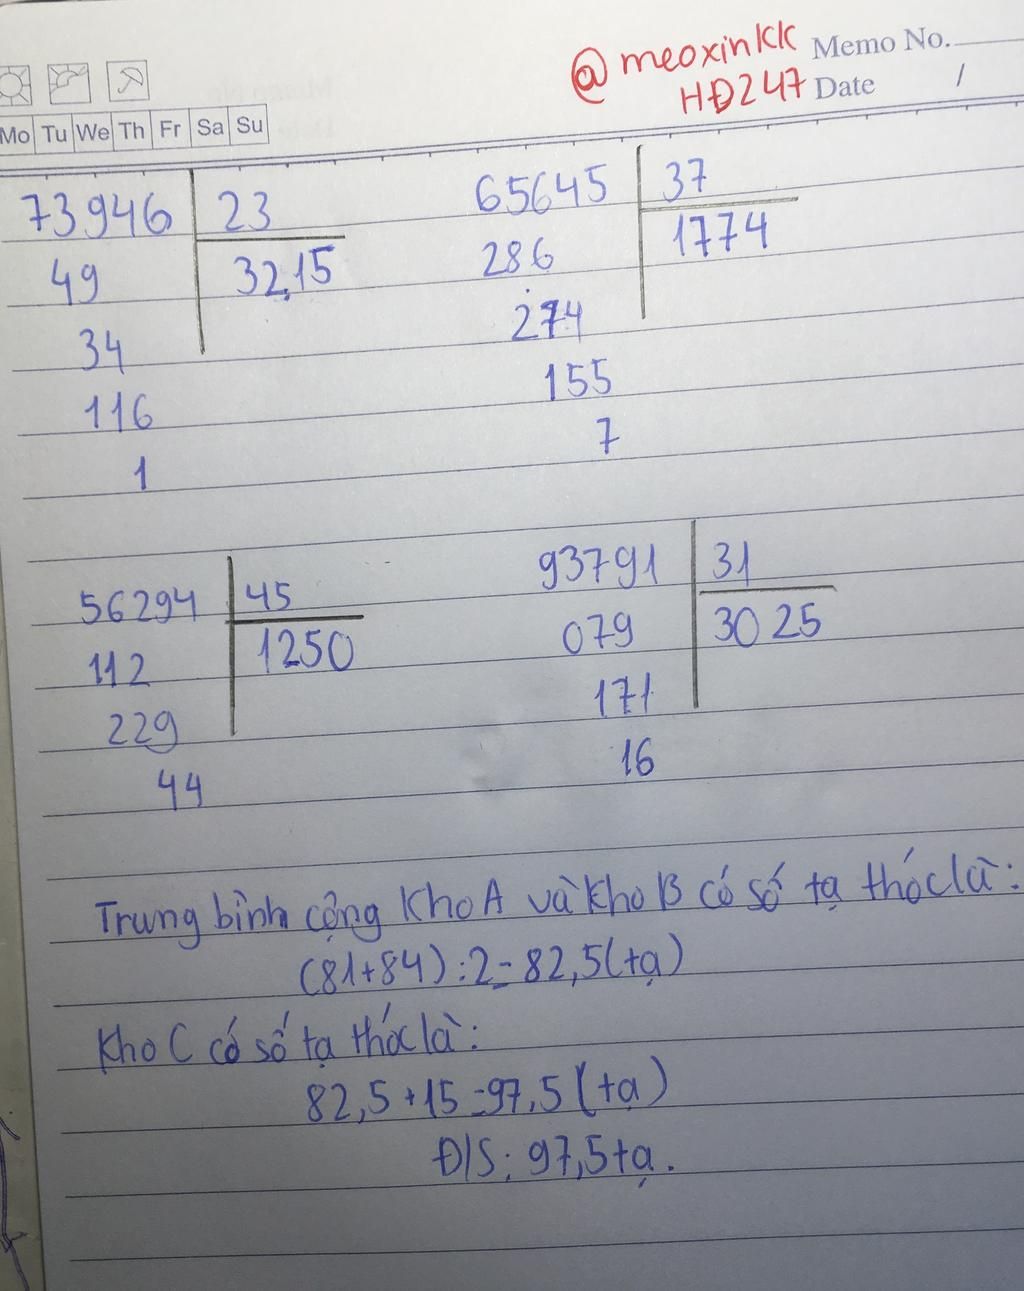 @ meoxinkk
HĐ247
Memo No.
Date /
Mo Tu We Th Fr Sa Su
73946 23
49 32,15
34
116
1
65645 37
286 1774
274
155
7
56294 45
112 1250
229
44
93791 31
079 3025
171
16
Trung bình cộng kho A và kho B có số tạ thóc là:
(81+84):2=82,5(tạ)
Kho C có số tạ thóc là:
82,5+15=97,5(tạ)
Đ/S: 97,5tạ.